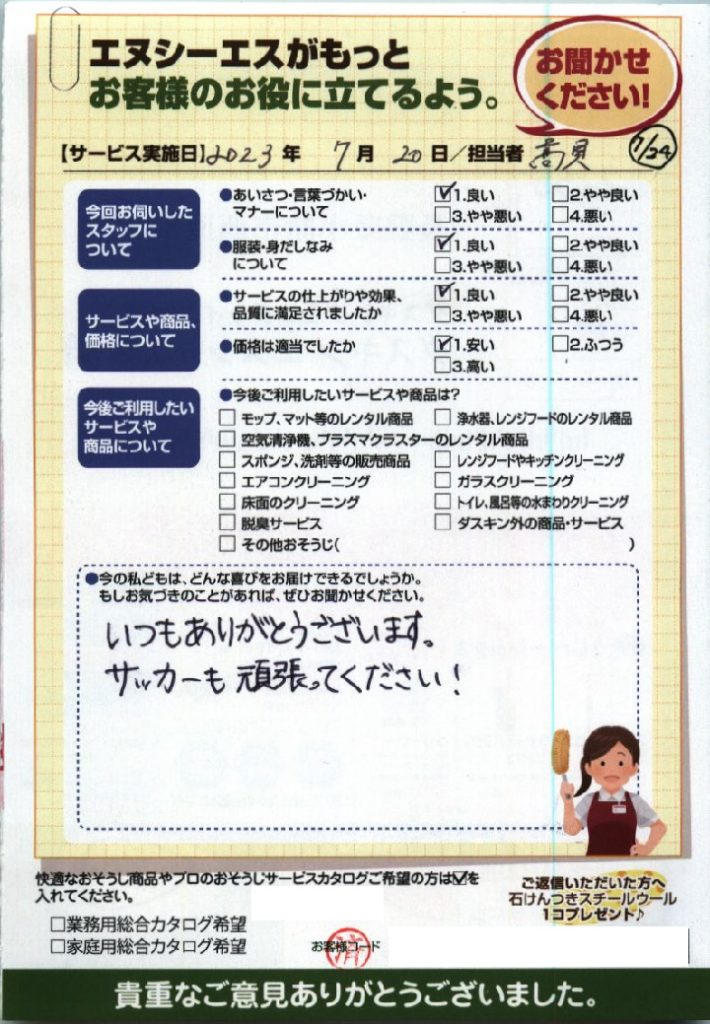 エヌシーエスがもっと
お客様のお役に立てるよう。
お聞かせ
ください!
【サービス実施日】2023年 7月 20日/担当者
7/24
今回お伺いした
スタッフに
ついて
●あいさつ・言葉づかい・
マナーについて
☑1.良い □2.やや良い
□3.やや悪い □4.悪い
●服装・身だしなみ
について
☑1.良い □2.やや良い
□3.やや悪い □4.悪い
サービスや商品、
価格について
●サービスの仕上がりや効果、
品質に満足されましたか
☑1.良い □2.やや良い
□3.やや悪い □4.悪い
●価格は適当でしたか
☑1.安い □2.ふつう
□3.高い
今後ご利用したい
サービスや
商品について
●今後ご利用したいサービスや商品は?
□ モップ、マット等のレンタル商品 □ 浄水器、レンジフードのレンタル商品
□ 空気清浄機、プラズマクラスターのレンタル商品
□ スポンジ、洗剤等の販売商品 □ レンジフードやキッチンクリーニング
□ エアコンクリーニング □ ガラスクリーニング
□ 床面のクリーニング □ トイレ、風呂等の水まわりクリーニング
□ 脱臭サービス □ ダスキン外の商品・サービス
□ その他おそうじ( )
●今の私どもは、どんな喜びをお届けできるでしょうか。
もしお気づきのことがあれば、ぜひお聞かせください。
いつもありがとうございます。
サッカーも頑張ってください!
快適なおそうじ商品やプロのおそうじサービスカタログご希望の方は☑を
入れてください。
□業務用総合カタログ希望
□家庭用総合カタログ希望
ご返信いただいた方へ
石けんつきスチールウール
1コプレゼント♪
お客様コード
済
貴重なご意見ありがとうございました。